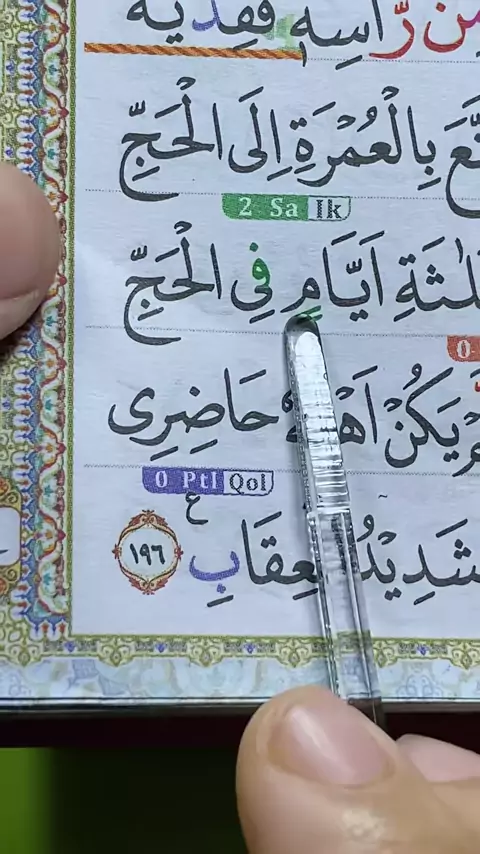 رَّأْسِهٖ فَفِدْيَةٌ
بِالْعُمْرَةِ اِلَى الْحَجِّ
2 Sa Ik
اَيَّامٍ فِى الْحَجِّ
0
يَكُنْ حَاضِرِى
0 Ptl Qol
ع
شَدِيْدُ الْعِقَابِ ١٩٦